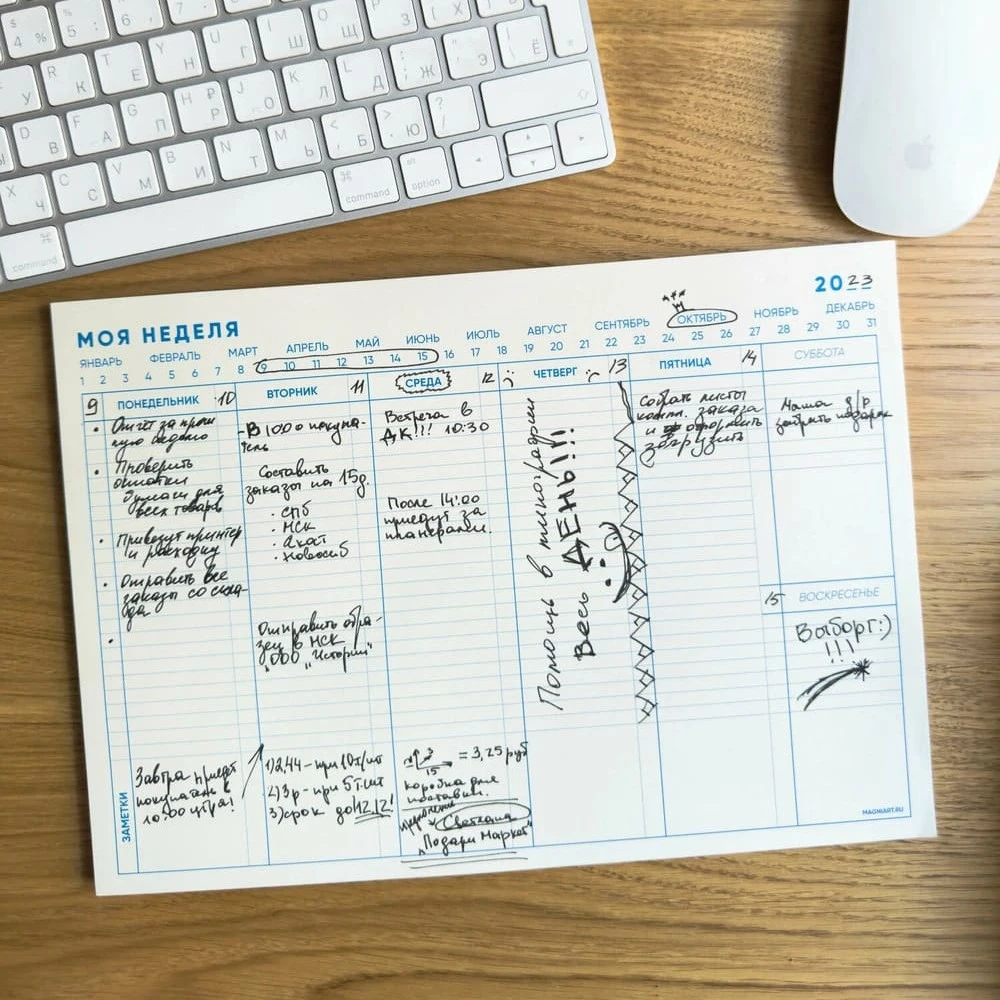 МОЯ НЕДЕЛЯ
2023
ЯНВАРЬ ФЕВРАЛЬ МАРТ АПРЕЛЬ МАЙ ИЮНЬ ИЮЛЬ АВГУСТ СЕНТЯБРЬ ОКТЯБРЬ НОЯБРЬ ДЕКАБРЬ
1 2 3 4 5 6 7 8 9 10 11 12 13 14 15 16 17 18 19 20 21 22 23 24 25 26 27 28 29 30 31
9 ПОНЕДЕЛЬНИК 10
• Отчёт за прош
лую неделю
• Проверить
остатки
бумаги для
всех товаров
• Привезут принтер
и расходку
• Отправить все
заказы со скла-
да.
•
ВТОРНИК 11
- В 10:00 покупа-
тель
Составить
заказы на 15д.
• СПб
• МСК
• Екат
• Новосиб
Отправить обра-
зец в МСК
"ООО "Истории"
СРЕДА 12
Встреча в
ДК!!! 10:30
После 14:00
приедут за
планерами.
ЧЕТВЕРГ 13
Помощь в типографии
Весь ДЕНЬ!!!
ПЯТНИЦА 14
Собрать листы
компл. заказа
и оформить
загрузить
СУББОТА
Маша д/р
забрать подарок
15 ВОСКРЕСЕНЬЕ
Выборг:)
!!!
ЗАМЕТКИ
Завтра приедет
покупатель в
10:00 утра!
1) 2,44 - при 10т/шт
2) 3р - при 5т.шт
3) срок до 12.12!
15 = 3,25 руб
коробка для
поставки.
Светлана
"Подари Маркет"
MAGNIART.RU
command
option
command